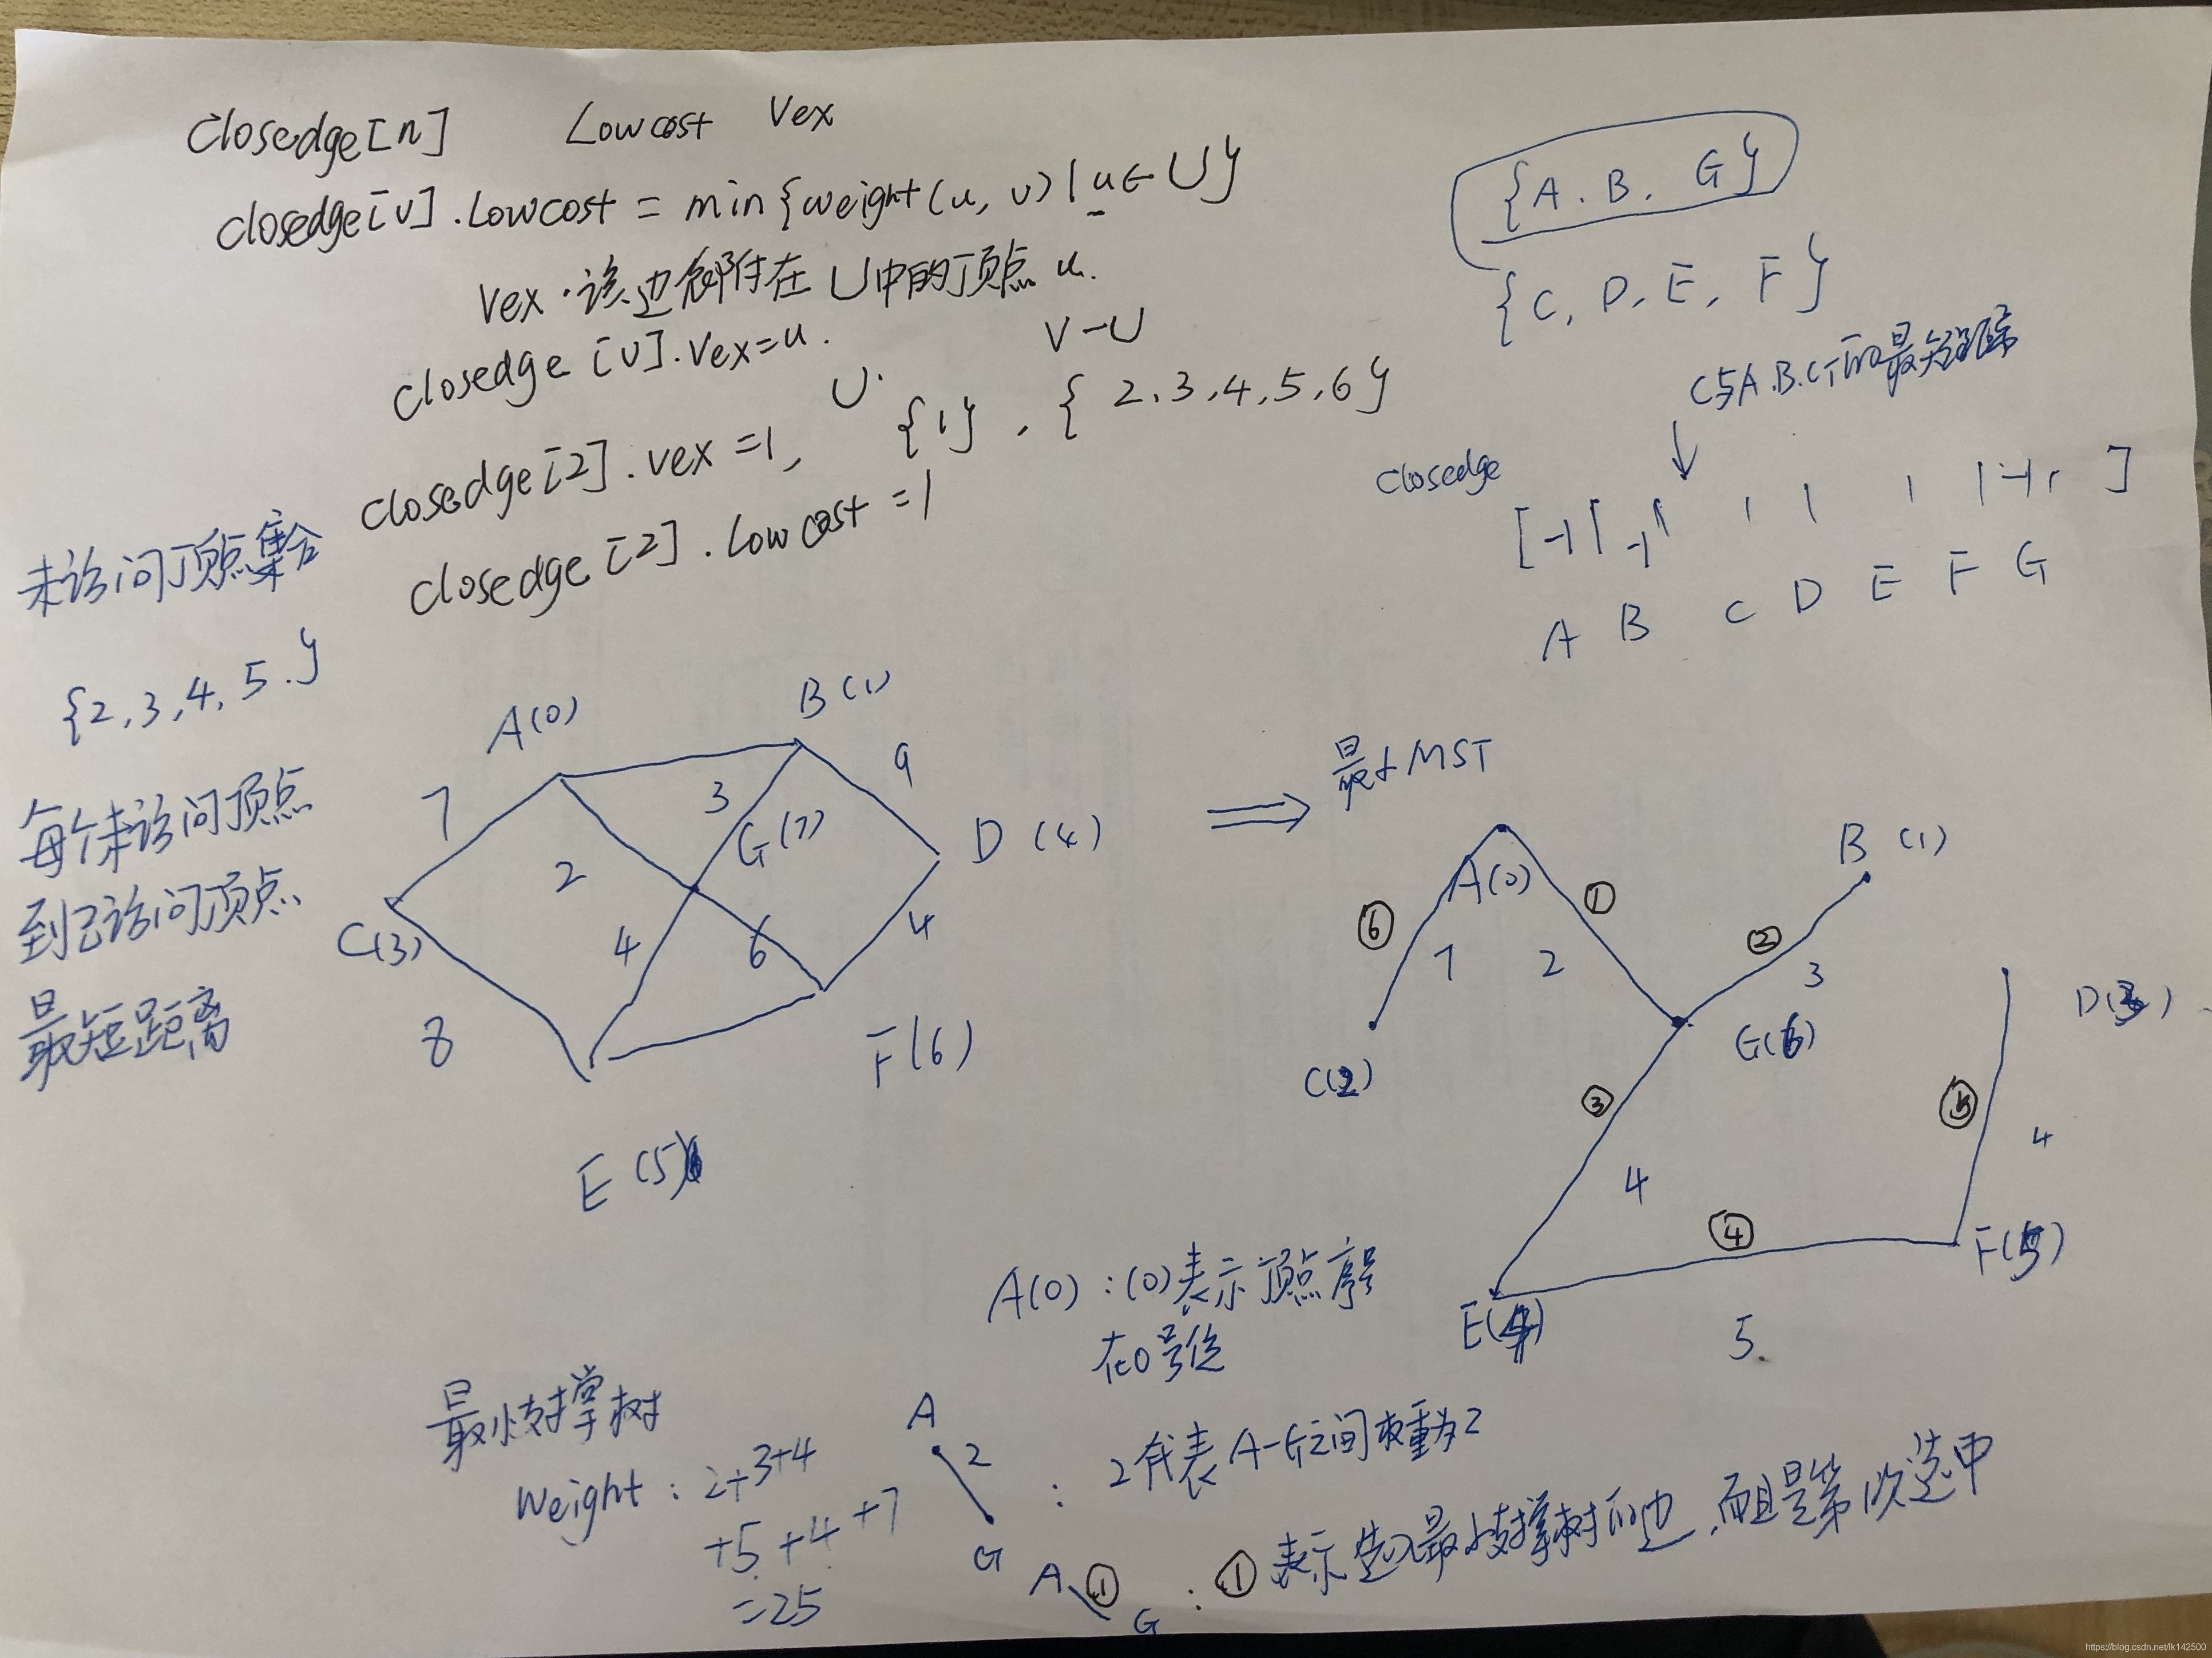 Closedge[n] Lowcost Vex
closedge[v].Lowcost = min{weight(u, v) | u ∈ U}
Vex · 该边依附在 U中的顶点 u.
closedge [v].Vex=u.
U. V-U
{1}, { 2,3,4,5,6}
closedge[2].vex =1,
closedge[2].Lowcost =1
{A. B. G}
{C, D, E, F}
C与A.B.G的最短距离
closedge
[-1 -1 -1 ]
A B C D E F G
未访问顶点集合
{2,3,4,5.}
每个未访问顶点
到已访问顶点
最短距离
A(0)
B(1)
7
3
9
G(7)
D (4)
2
C(3)
4
6
4
8
F(6)
E(5)
⇒
最小MST
A(0)
B (1)
⑥
①
②
7
2
3
C(2)
G(6)
D(3)
③
⑤
4
4
④
F(5)
E(4)
5.
A(0) : (0)表示顶点序号
在0号位
最小支撑树
Weight : 2+3+4
+5+4+7
=25
A
2
G
: 2代表 A-G之间权重为2
A ① G : ① 表示选入最小支撑树的边,而且是第1次选中
https://blog.csdn.net/lk142500